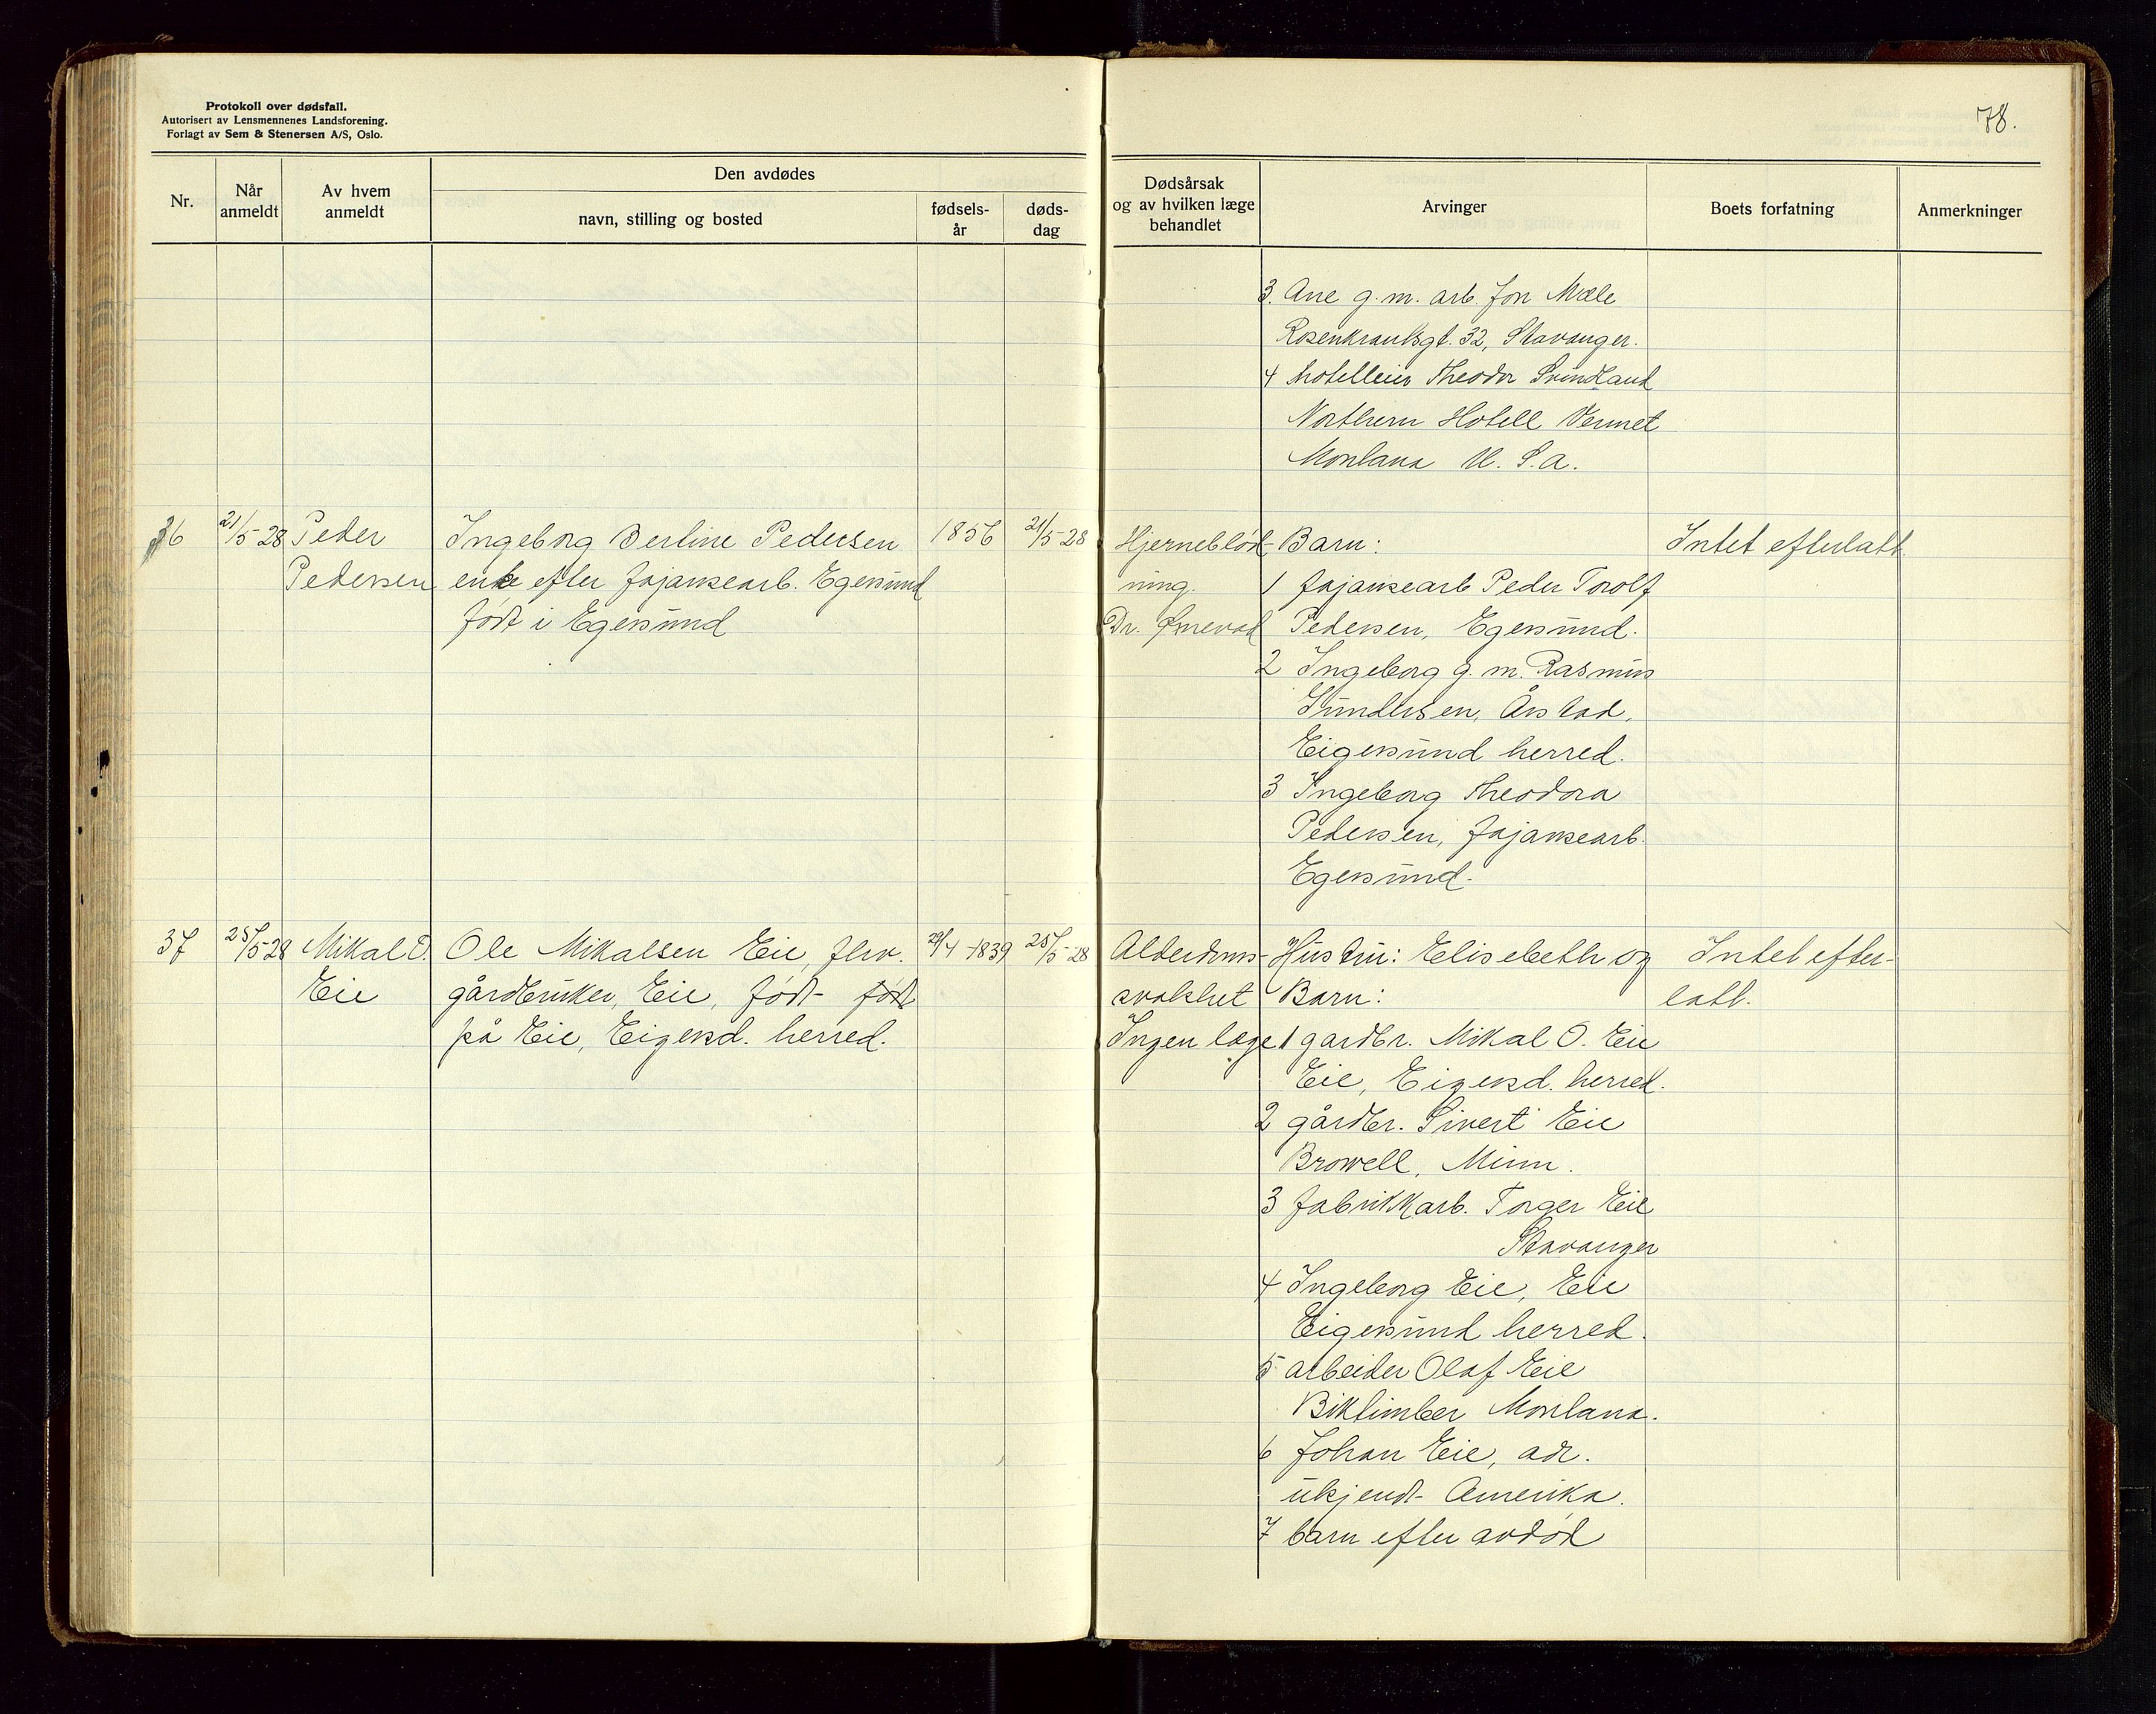 Protokoll over dødsfall.
Autorisert av Lensmennenes Landsforening.
Forlagt av Sem & Stenersen A/S, Oslo.
78.
Nr.
Når anmeldt
Av hvem anmeldt
Den avdødes
navn, stilling og bosted
fødsels-år
døds-dag
Dødsårsak og av hvilken læge behandlet
Arvinger
Boets forfatning
Anmerkninger
3. Ane g.m. arb. Jon Mæle
Rosenkrantsgt. 32, Stavanger.
4 hotelleier Theodor Svindland
Northern Hotell
Montana U.S.A.
36
21/5-28
Peder
Pedersen
Ingeborg Berline Pedersen
enke efter fajansearb. Egersund
født i Egersund
1856
21/5-28
Hjerneblød-
ning.
Dr. Ørnevad
Barn:
1 fajansearb Peder Torolf
Pedersen, Egersund.
2 Ingeborg g.m. Rasmus
Gundersen, Årstad,
Eigersund herred.
3 Ingeborg Theodora
Pedersen, fajansearb.
Egersund.
Intet efterlatt.
37
25/5-28
Mikal O.
Eie
Ole Mikalsen Eie, fhv.
gårdbruker, Eie, født født
på Eie, Eigersd. herred.
29/4-1839
25/5-28
Alderdoms-
svakhet
Ingen læge
Hustru: Elisebeth og
Barn:
1 gardbr. Mikal O. Eie
Eie, Eigersd. herred.
2 gårdbr. Sivert Eie
Browell, Minn.
3 fabrikkarb. Torger Eie
Stavanger
4 Ingeborg Eie, Eie
Eigersund herred.
5 arbeider Olaf Eie
Biktimber Montana.
6 Johan Eie, adr.
ukjendt Amerika.
7 barn efter avdød
Intet efter-
latt.